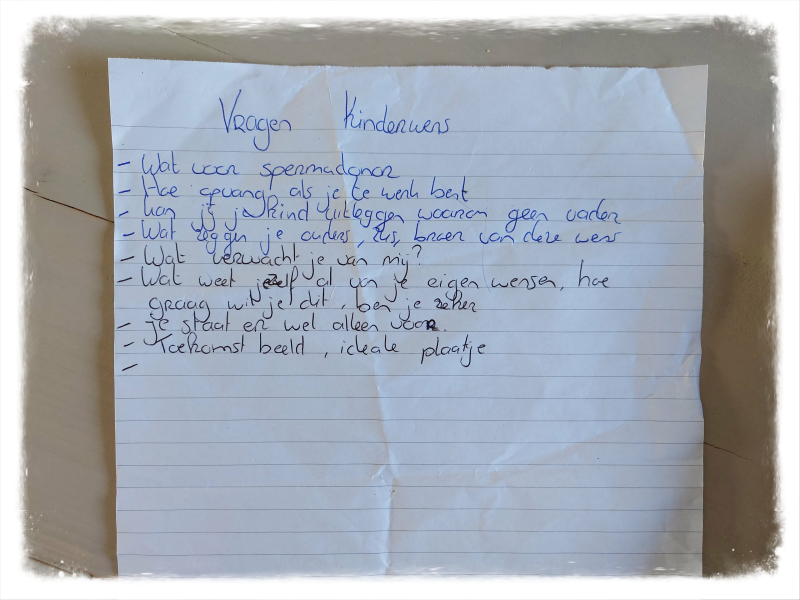 Vragen Kinderwens
- Wat voor spermadonor
- Hoe opvang als je te werk bent
- kan jij je kind uitleggen waarom geen vader
- Wat zeggen je ouders, zus, broer van deze wens
- Wat verwacht je van mij?
- Wat weet jezelf al van je eigen wensen, hoe
graag wil je dit, ben je zeker
- je staat er wel alleen voor.
- Toekomst beeld, ideale plaatje
-